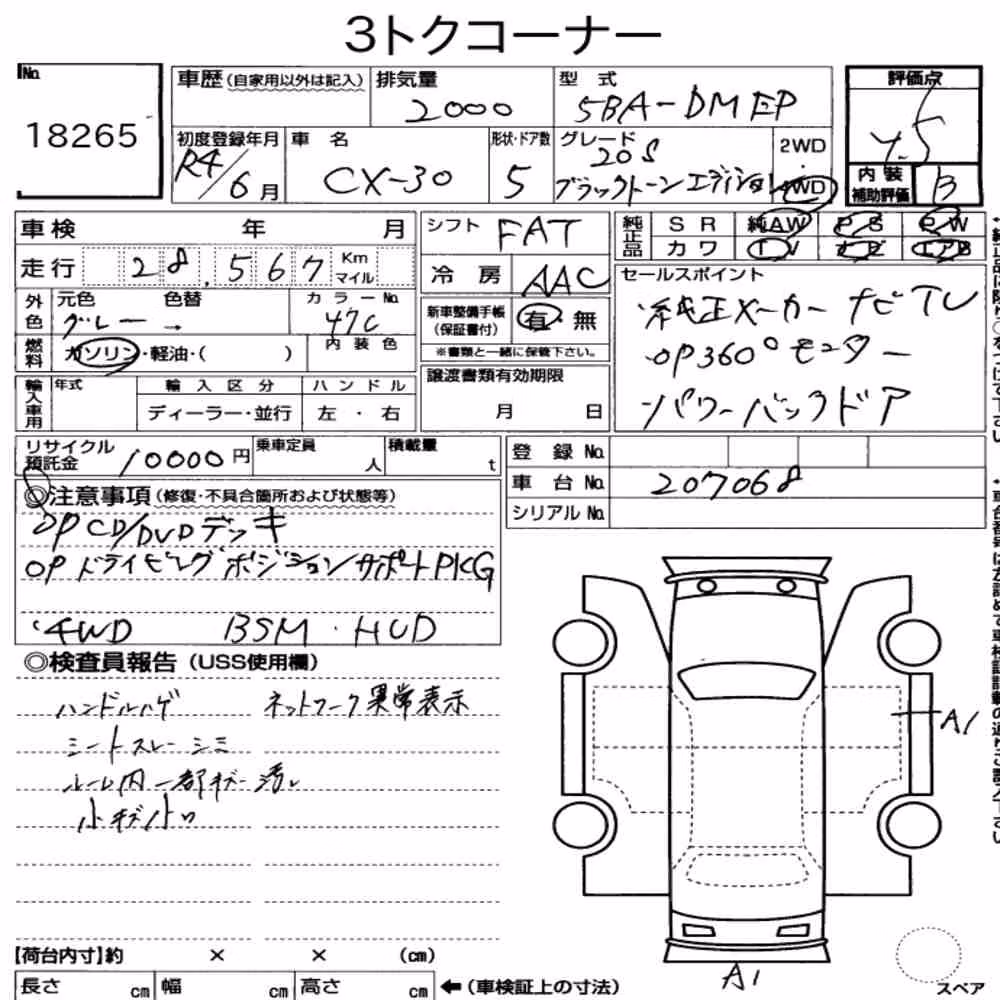 3トクコーナー
No. 18265
車歴(自家用以外は記入)
排気量 2000
型式 5BA-DMEP
評価点 4.5
初度登録年月 R4/6月
車名 CX-30
形状・ドア数 5
グレード 20S
ブラックトーンエディション
2WD
4WD
内装補助評価 B
車検 年 月
走行 28,567 Km マイル
シフト FAT
冷房 AAC
純正品 SR 純AW PS PW
カワ TV ナビ エアB
外色 元色 グレー 色替 →
カラーNo. 47C
燃料 ガソリン・軽油・( )
内装色
新車整備手帳(保証書付) 有・無
※書類と一緒に保管下さい。
セールスポイント
・純正メーカーナビTV
・OP360°モニター
・パワーバックドア
輸入車用 年式 輸入区分 ハンドル
ディーラー・並行 左・右
譲渡書類有効期限
月 日
リサイクル預託金 10000円
乗車定員 人
積載量 t
登録No.
車台No. 207068
シリアルNo.
◎注意事項(修復・不具合箇所および状態等)
OP CD/DVDデッキ
OP ドライビングポジションサポートPKG
・4WD BSM・HUD
◎検査員報告(USS使用欄)
ハンドルハゲ ネットワーク異常表示
シートスレーシミ
ルーム内一部キズー汚レ
小キズ小凹
A1
A1
【荷台内寸】約 × × (cm)
長さ cm 幅 cm 高さ cm ←(車検証上の寸法)
スペア